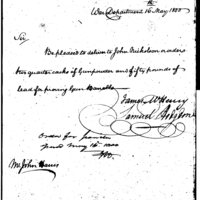 War Department 16 May 1800
Sir,
Be pleased to deliver to John Nicholson or order
two quarter casks of Gunpowder and fifty pounds of
lead for proving Gun Barrells
James McHenry
Samuel
Order for powder
May 16th 1800
Mr John Harris